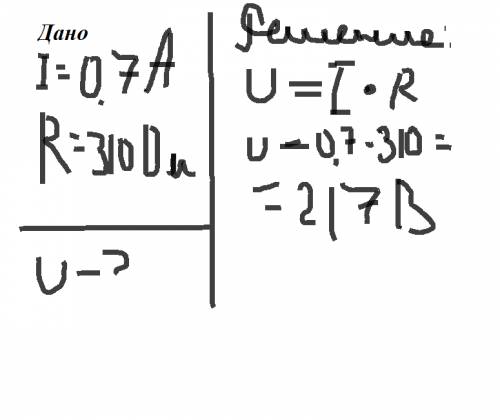 Дано
I = 0.7 A
R = 310 Ом
U - ?
Решение:
U = I • R
u - 0,7 · 310 =
= 217 В